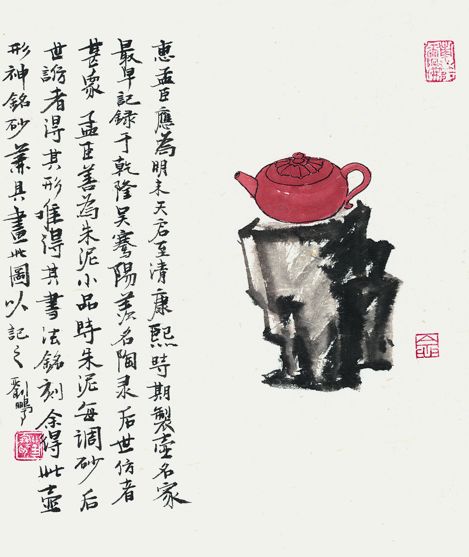 惠孟臣應為明末天启至清康熙時期製壺名家
最早記録于乾隆吴騫陽羡名陶录后世仿者
甚衆孟臣善為朱泥小品時朱泥每調砂后
世謗者得其形难得其書法銘刻余得此壺
形神銘砂兼具畫此圖以記之
劉鵬